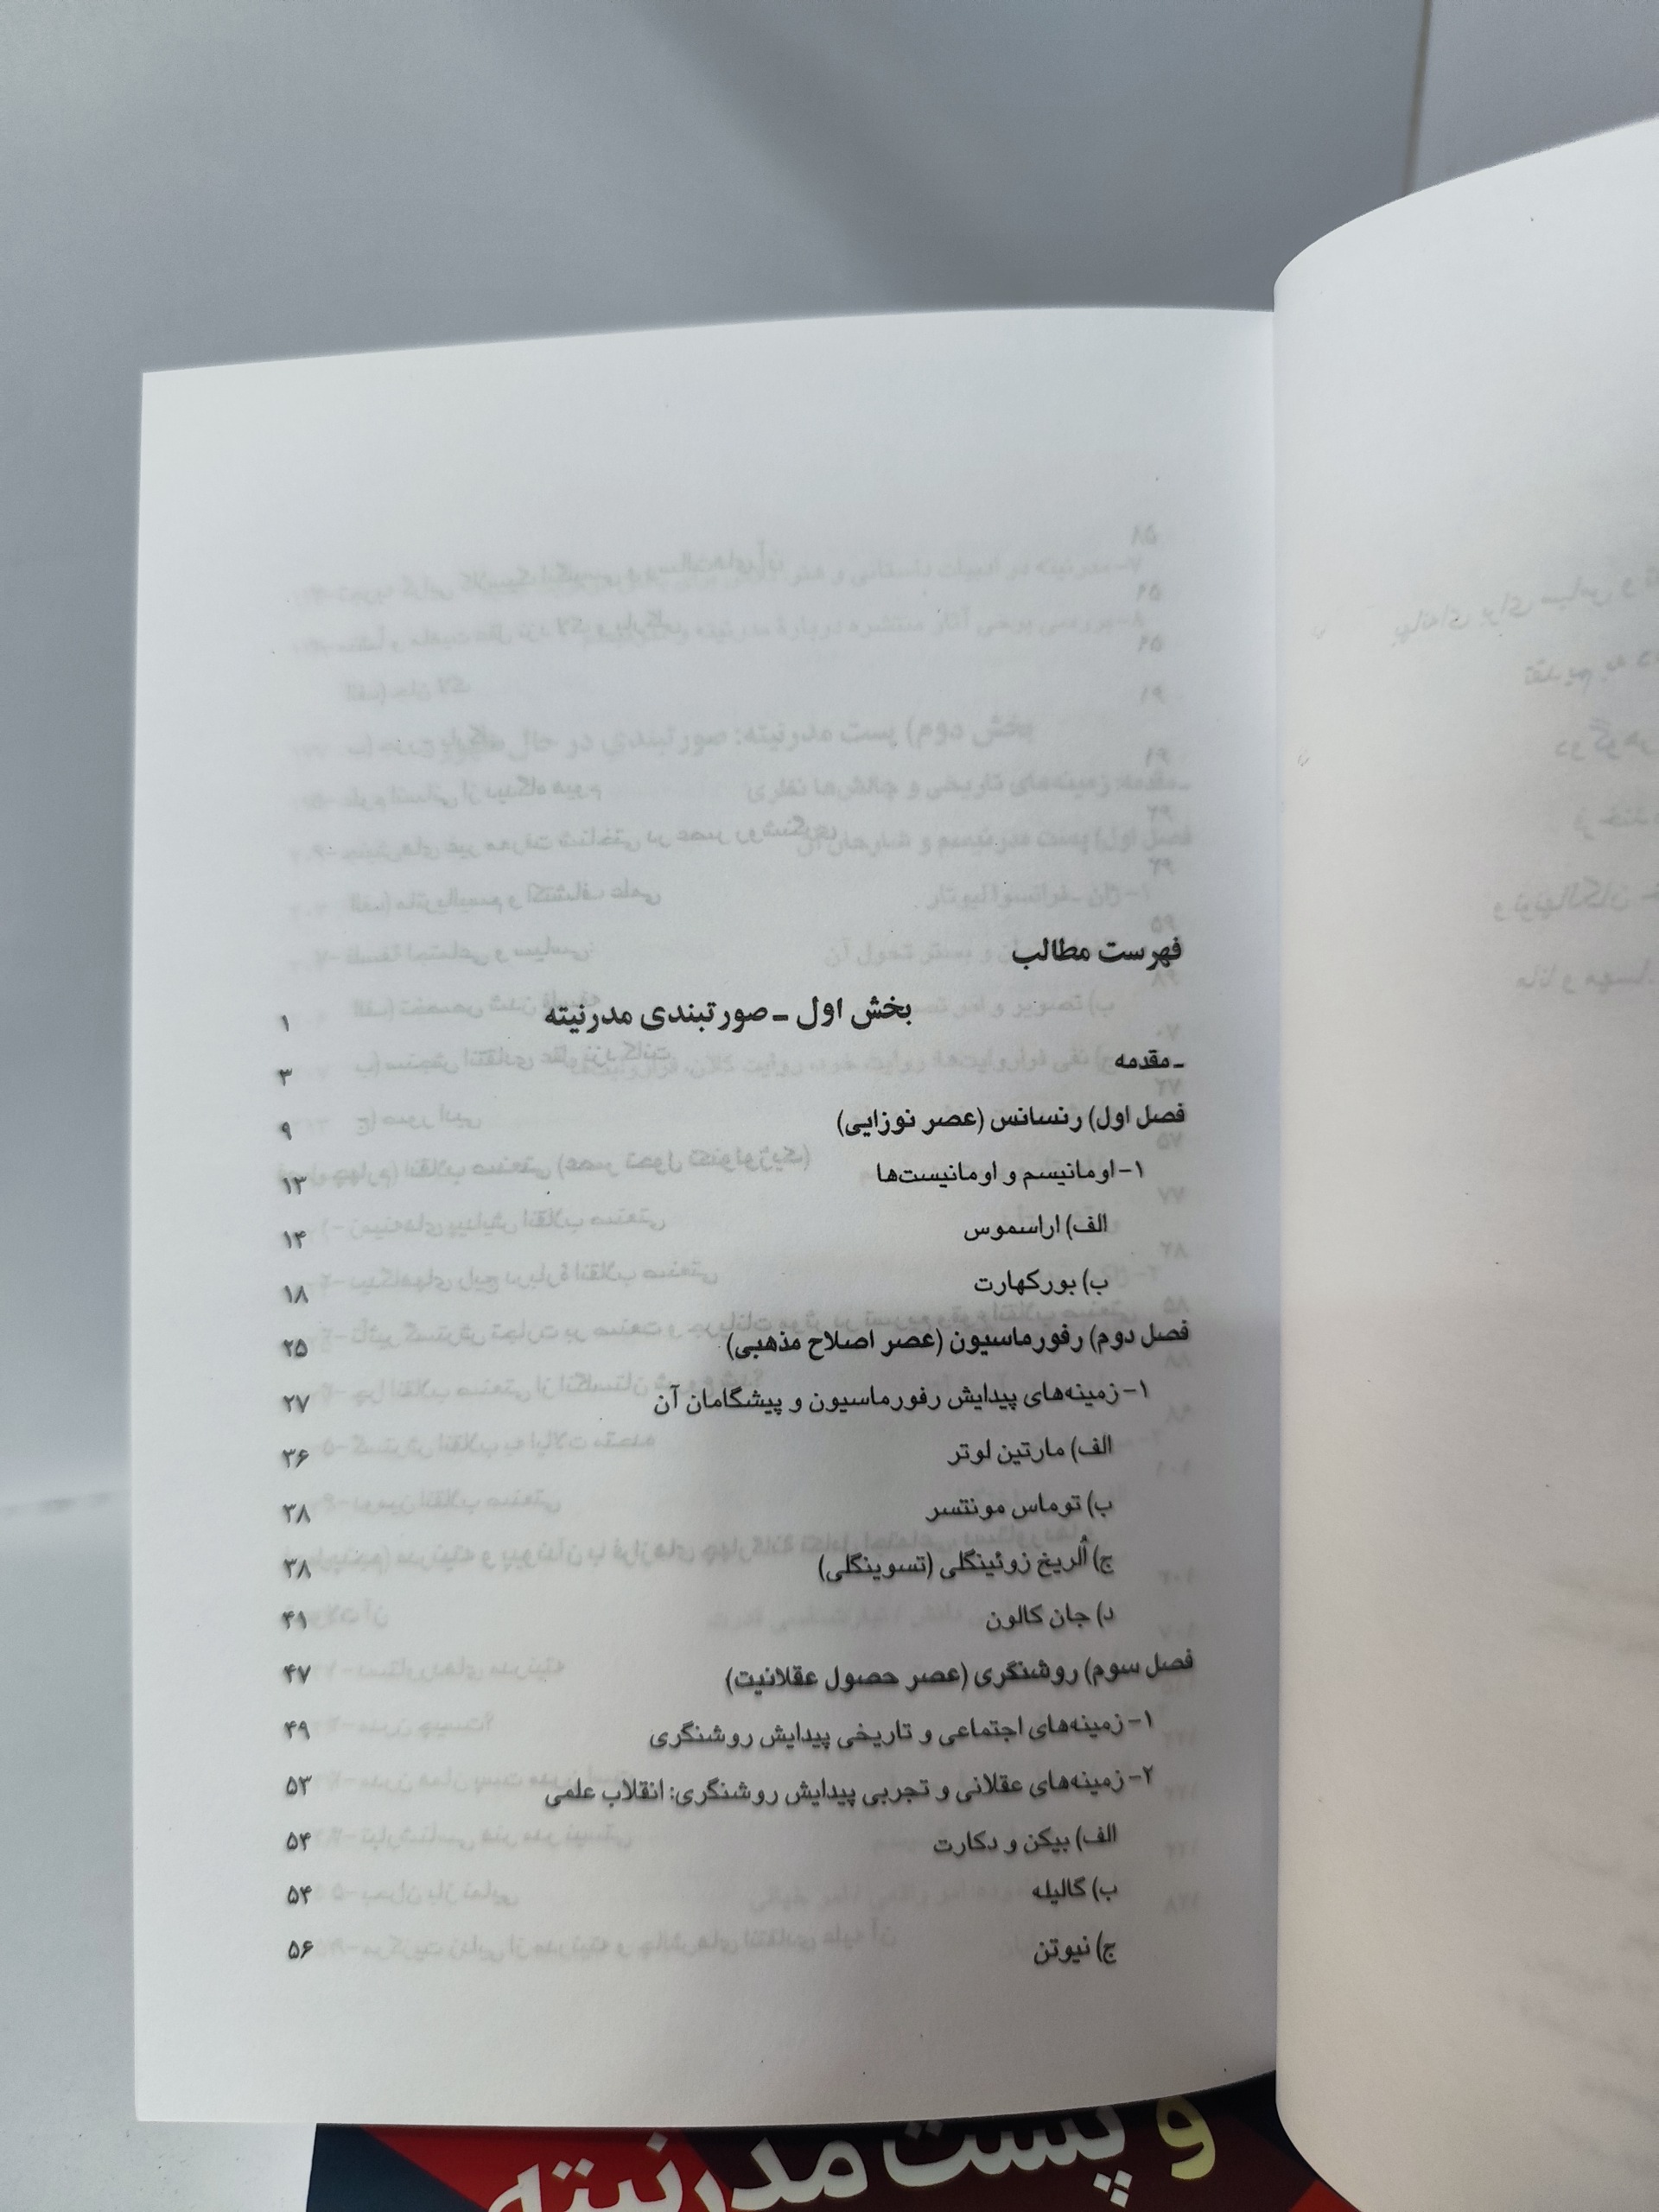 فهرست مطالب
بخش اول ـ صورتبندی مدرنیته ۱
ـ مقدمه ۳
فصل اول) رنسانس (عصر نوزایی) ۹
۱- اومانیسم و اومانیست‌ها ۱۳
الف) اراسموس ۱۴
ب) بورکهارت ۱۸
فصل دوم) رفورماسیون (عصر اصلاح مذهبی) ۲۵
۱- زمینه‌های پیدایش رفورماسیون و پیشگامان آن ۲۷
الف) مارتین لوتر ۳۶
ب) توماس مونتسر ۳۸
ج) اُلریخ زوئینگلی (تسوینگلی) ۳۸
د) جان کالون ۴۱
فصل سوم) روشنگری (عصر حصول عقلانیت) ۴۷
۱- زمینه‌های اجتماعی و تاریخی پیدایش روشنگری ۴۹
۲- زمینه‌های عقلانی و تجربی پیدایش روشنگری: انقلاب علمی ۵۳
الف) بیکن و دکارت ۵۴
ب) گالیله ۵۴
ج) نیوتن ۵۶
و پست مدرنیته